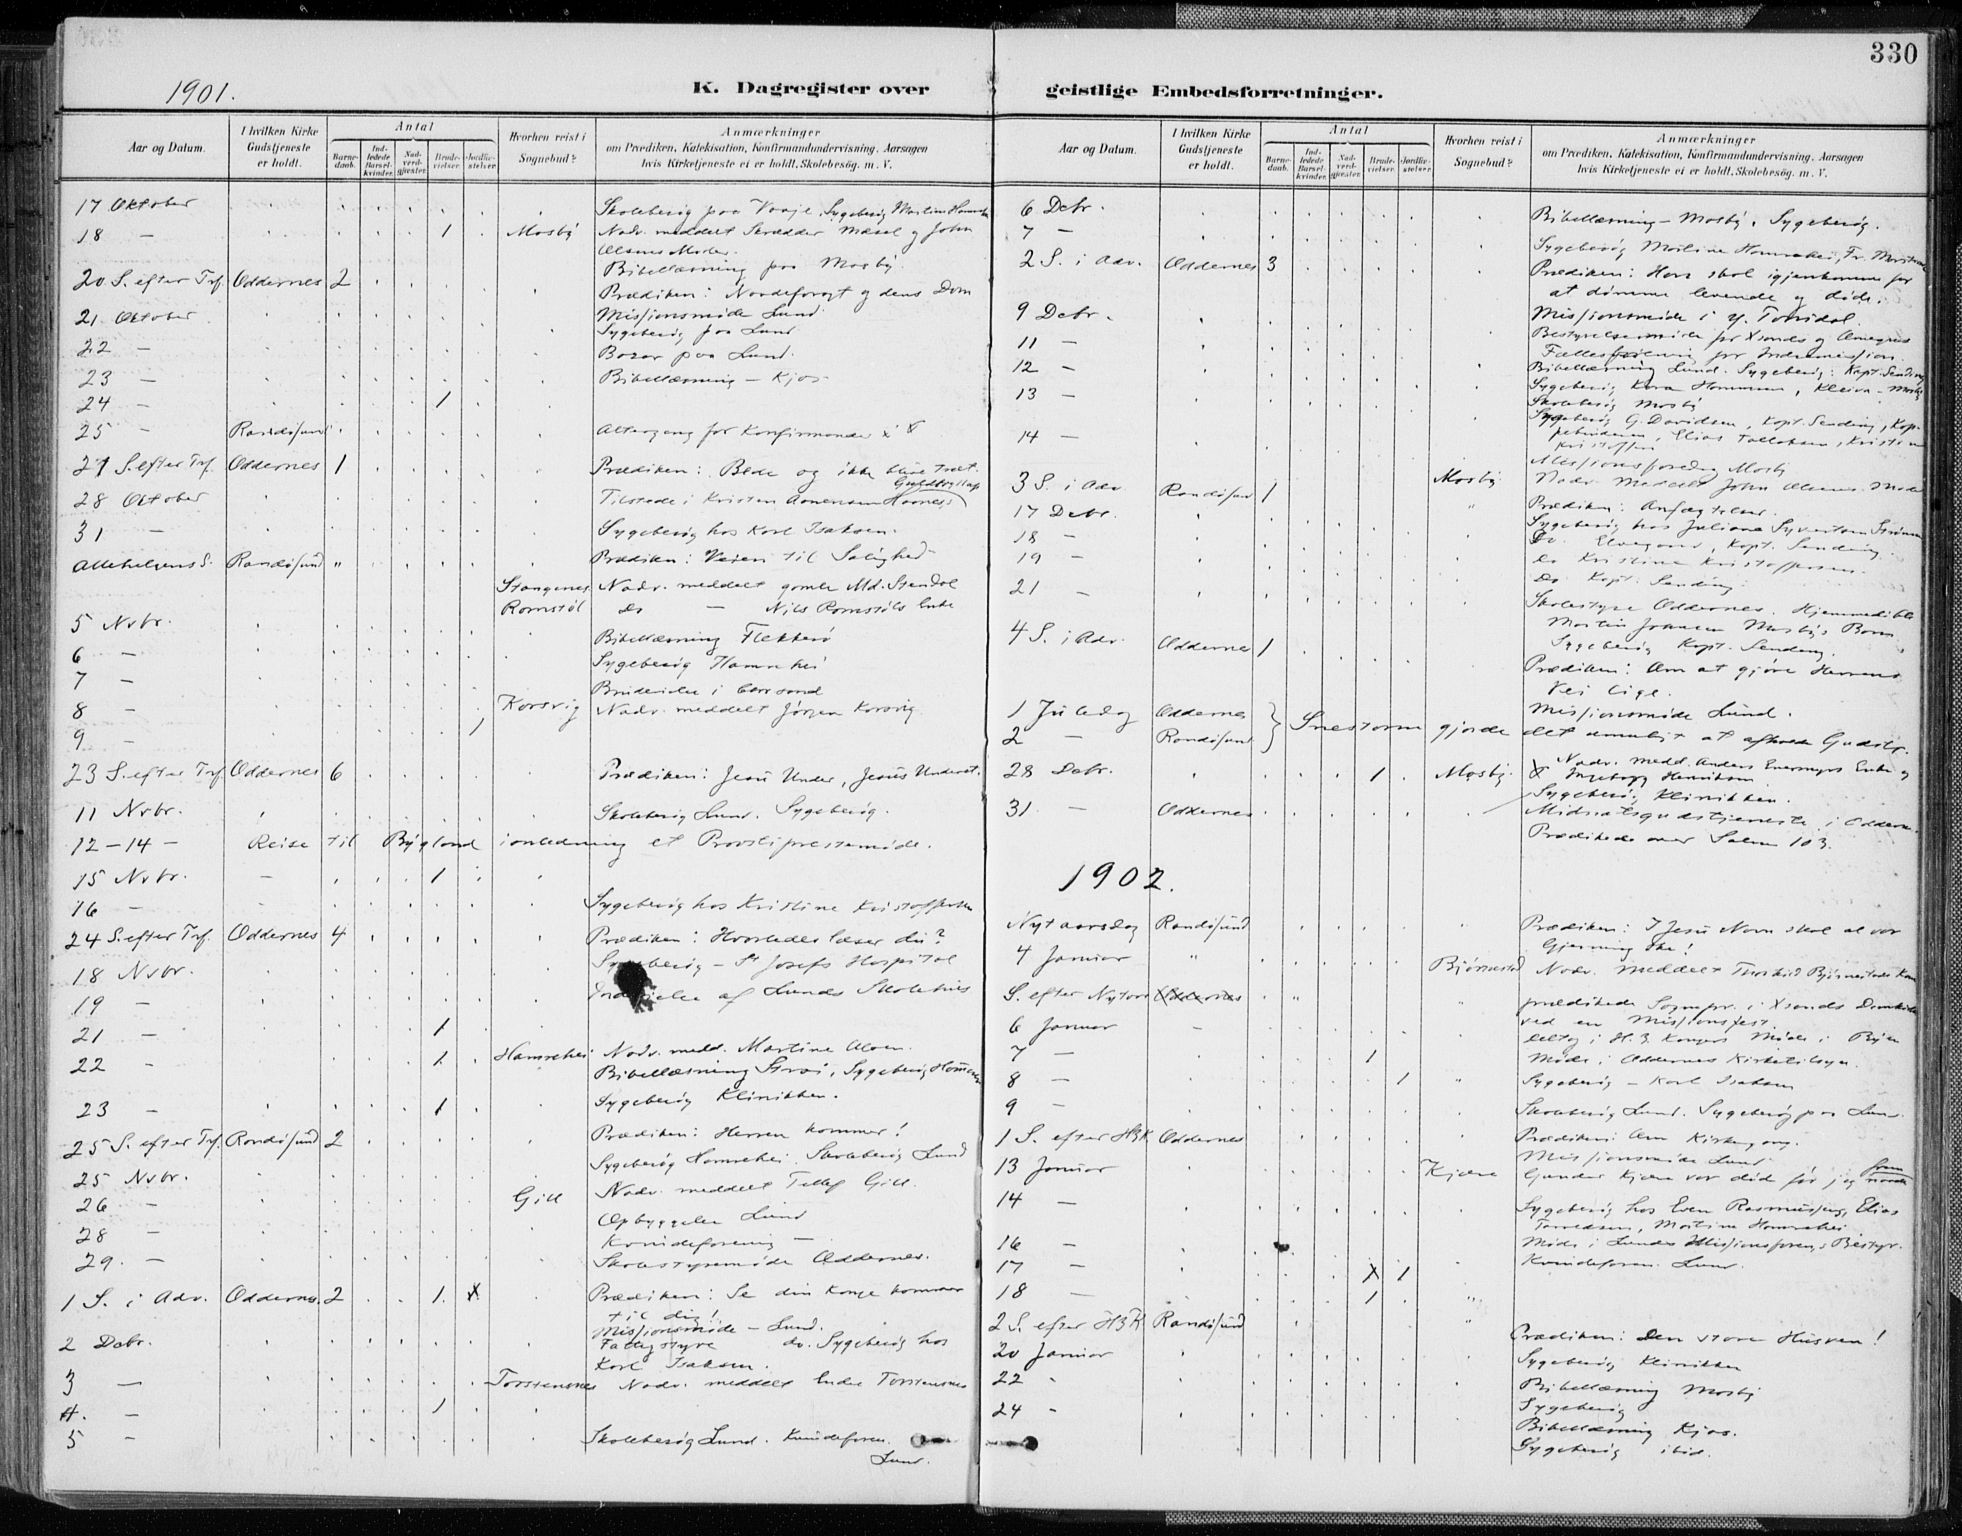 330
1901.
K. Dagregister over geistlige Embedsforretninger.
Aar og Datum.
I hvilken Kirke Gudstjeneste er holdt.
Antal
Barnedaab.
Indledede Barselkvinder.
Nadverdgjæster.
Brudevielser.
Jordfæstelser.
Hvorhen reist i Sognebud?
Anmærkninger
om Prædiken, Katekisation, Konfirmandundervisning, Aarsagen
hvis Kirketjeneste ei er holdt, Skolebesög. m. V.
17 Oktober Skolebesøg paa Vaaje. Sygebesøg
18 — 1 Mosby Nadv. meddelt Skrædder og John
Olsens Moder.
Bibellæsning paa Mosby
20 S. efter Trf. Oddernes 2 Prædiken: og dens Dom
21 Oktober Missionsmøde Lund
Sygebesøg paa Lund
22 — Bazar paa Lund.
23 — Bibellæsning — Kjos
24 — 1
25 — Randøsund Altergang for Konfirmander
21 S. efter Trf. Oddernes 1 Prædiken: Bede og ikke blive træt.
Guldbryllup
28 Oktober Tilstede i Kristen
31 — Sygebesøg hos Karl Isaksen.
Allehelgens S. Randøsund " Prædiken: Veien til Salighed
Stangenes Nadv. meddelt gamle Md. Stendal
Romstøl Do — Nils Romstøls Enke
5 Nvbr. Bibellæsning Flekkerø
6 — Sygebesøg Hamrehei
7 — Brudevielse i
8 — Korsvig Nadv. meddelt Jørgen Korsvig
9 — 1
23 S. efter Trf. Oddernes 6 Prædiken: Jesu Under, Jesus Underet.
11 Nvbr. Skolebesøg Lund. Sygebesøg.
12-14 — Reise til Bygland i anledning et Provstiprestemøde.
15 Nvbr. — 1
16 — Sygebesøg hos Kristine Kristoffersen
24 S. efter Trf. Oddernes 4 Prædiken: Hvorledes læser du?
18 Nvbr. Sygebesøg — St Josefs Hospital
19 — Indvielse af Lunds Skolehus
21 — 1
22 — 1 Hamrehei Nadv. medd. Martine Olsen.
Bibellæsning Strai, Sygebesøg
23 — 1 Sygebesøg Klinikken.
25 S. efter Trf. Randøsund 2 Prædiken: Herren kommer!
25 Nvbr. Sygebesøg Hamrehei. Skolebesøg Lund
26 — Gill Nadv. meddelt Tellef Gill.
28 — Opbyggelse Lund
Kvindeforening —
29. — Skolestyremøde Oddernes.
1 S. i Adv. Oddernes. 2 1 X Prædiken: Se din Konge kommer
til dig!
Missionsmøde — Lund.
2 Debr. Fattigstyre do. Sygebesøg hos
Karl Isaksen.
3 — Torstensnes Nadv. meddelt Enke Torstensnes
4. — 1
5 — Skolebesøg Lund. Kvindeforen.
Lund.
Aar og Datum.
I hvilken Kirke Gudstjeneste er holdt.
Antal
Barnedaab.
Indledede Barselkvinder.
Nadverdgjæster.
Brudevielser.
Jordfæstelser.
Hvorhen reist i Sognebud?
Anmærkninger
om Prædiken, Katekisation, Konfirmandundervisning, Aarsagen
hvis Kirketjeneste ei er holdt, Skolebesög. m. V.
6 Debr. Bibellæsning — Mosby. Sygebesøg.
7 — Sygebesøg Martine Hamrehei, Fr.
2 S. i Adv. Oddernes 3 Prædiken: Han skal igjenkomme for
at dømme levende og døde.
9 Debr. Missionsmøde i Tonsdal
11 — Bestyrelsesmøde for Xsands og Omegns
Fællesforening for Indremission
12 — Bibellæsning Lund. Sygebesøg: Kapt. Sending
13 — Sygebesøg Hamren, Kleiva — Mosby
Skolebesøg Mosby
14 — Sygebesøg G. Davidsen, Kapt. Sending,
Elias Tallaksen,
Missionsforedrag Mosby
3 S. i Adv. Randøsund 1 Mosby Nadv. Meddelt John Olsens Moder
17 Debr. Prædiken: Anfægtelser.
18 — Sygebesøg hos Juliane Syvertsen
Do. Kapt. Sending
19 — Do Kristine Kristoffersen.
21 — Do Kapt. Sending
Skolestyre Oddernes. Hjemmedøbt
Martin Johnsen Mosbys Barn
4 S. i Adv. Oddernes 1 Sygebesøg Kapt. Sending.
Prædiken: Om at gjøre Herrens
Vei lige.
Missionsmøde Lund.
1 Juledag Oddernes
2 — Randøsund
} Snestorm gjorde det umulig at afholde Gudstj.
28 Debr. 1 Mosby. Nadv. medd. Anders Enke og
Ingeborg Henriksen
Sygebesøg Klinikken.
31 — Oddernes Midnatsgudstjeneste i Oddernes.
Prædikede over Salme 103.
1902.
Nytaarsdag Randøsund Prædiken: I Jesu Navn skal al vor
Gjerning ske!
4 Januar " Bjørnestad Nadv. meddelt
S. efter Nytaar Oddernes " prædikede Sognepr. i Xsands Domkirke
ved en Missionsfest
6 Januar — deltog i H. 3 Kongers Møde i Byen
7 — 1 Møde i Oddernes Kirketilsyn.
8 — 1 Sygebesøg — Karl Isaksen
9 — Skolebesøg Lund. Sygebesøg paa Lund.
1 S. efter H3K Oddernes Prædiken: Om Kirkegang.
Missionsmøde Lund
13 Januar Kjære Gunder Kjære var død før jeg
14 — Sygebesøg hos Even Rasmussen, Elias
Martine Hamrehei
16 — Møde i Lunds Missionsforen.s Bestyr.
17 — X 1 Kvindeforen. Lund.
18 — 1 "
2 S. efter H3K Randøsund Prædiken: Den store Husven!
20 Januar Sygebesøg Klinikken
22 - Bibellæsning Mosby
Sygebesøg
24 - Bibellæsning Kjos.
Sygebesøg ibid.